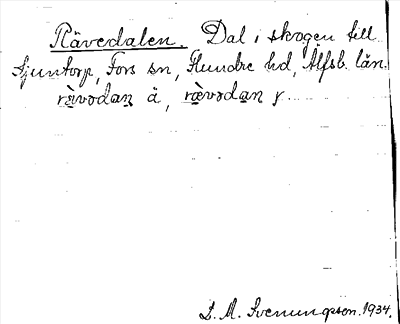 Rävedalen. Dal i skogen till
Sjuntorp, Fors sn, Flundre hd, Älfsb. län.
rä̀vədaṉ ä, ræ̀vədaṉ y
D. M. Svenungsson. 1934.